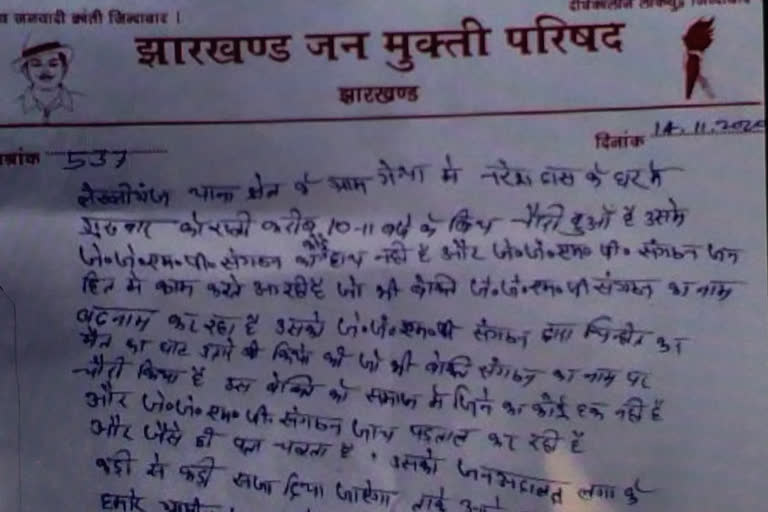 जनवादी क्रांती जिन्दाबाद !
दीर्घकालीन लोकयुद्ध जिन्दाबाद
झारखण्ड जन मुक्ती परिषद
झारखण्ड
दिनांक 14.11.2020
क्रमांक 537
लेस्लीगंज थाना क्षेत्र के ग्राम में नरेश दास के घर में
शुक्रवार को रात्री करीब 10-11 बजे के बिच चौरी हुओं है उसमे
जे०जे०एम०पी० संगठन का कोई हाथ नहीं है और जे०जे०एम०पी० संगठन जन
हित में काम करते आ रही है जो भी वेक्ति जे०जे०एम०पी संगठन का नाम
बदनाम कर रहा है उसको जे०जे०एम०पी संगठन द्वारा चिन्हीत कर
मौत का घाट उतारे जो भी वेक्ति संगठन का नाम पर
चौरी किया है उस वेक्ति को समाज में जिने का कोई हक नहीं है
और जे०जे०एम०पी० संगठन जाच पड़ताल कर रही है
और जैसे ही पता चलता है, उसको जनअदालत लगा के
कड़ी से कड़ी सजा दिया जाएगा, ताके
हमारे